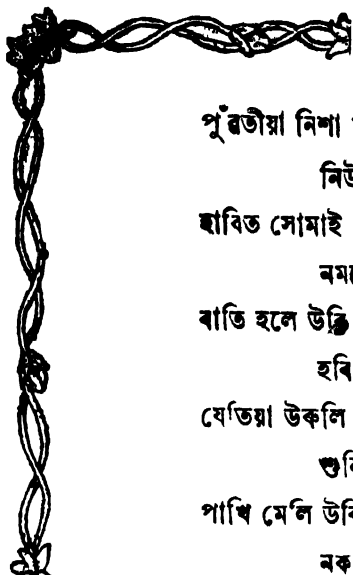 পুঁৱতীয়া নিশা
নিউ
হাবিত সোমাই
নম
ৰাতি হলে উৰি
হৰি
যেতিয়া উৰুলি
শুনি
পাখি মেলি উৰি
নক